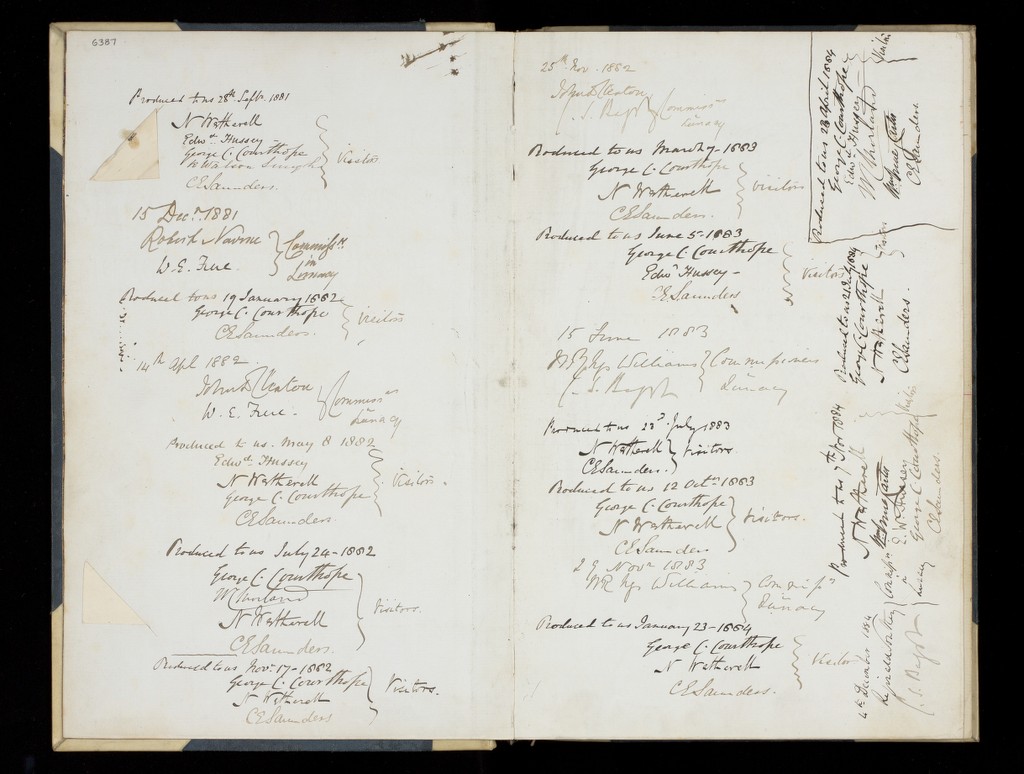 6387
Produced to us 28th Septr. 1881
N Wetherell
Edwd. Hussey
George C. Courthope
Visitors
CESaunders.
15 Decr. 1881
Robert Nairne
Commissrs
in
W. E. Frere.
Lunacy
Produced to us 19 January 1882
George C. Courthope
Visitors
CESaunders.
14th Apl 1882.
W. E. Frere.
Commissrs
Lunacy
Produced to us. May 8 1882
Edwd. Hussey
N Wetherell
Visitors.
George C. Courthope
CESaunders.
Produced to us July 24-1882
George C. Courthope
Visitors.
N Wetherell
CESaunders.
Produced to us Novr. 17-1882
George C. Courthope
Visitors.
N Wetherell
CESaunders
25th Nov. 1882
Commissrs
Lunacy
Produced to us March 7-1883
George C. Courthope
Visitors
N Wetherell
CESaunders.
Produced to us June 5-1883
George C. Courthope
Visitors
Edwd Hussey-
CESaunders
15 June 1883
Williams Commissioners
Lunacy
Produced to us 23d July 1883
N Wetherell
Visitors.
CESaunders.
Produced to us 12 Octr. 1883
George C. Courthope
Visitors.
N Wetherell
CESaunders
29 Novr 1883
Williams Commissrs
Lunacy
Produced to us January 23-1884
George C. Courthope
Visitors
N Wetherell
CESaunders.
Produced to us 23 April 1884
George C. Courthope
Edwd. Hussey
Visitors
CESaunders.
Produced to us 21 July 1884
George C. Courthope
N Wetherell
Visitors
CESaunders.
Produced to us 7th Novr 1884
N Wetherell
George C. Courthope
Visitors
CESaunders.
4th December 1884
Commissrs
in
Lunacy